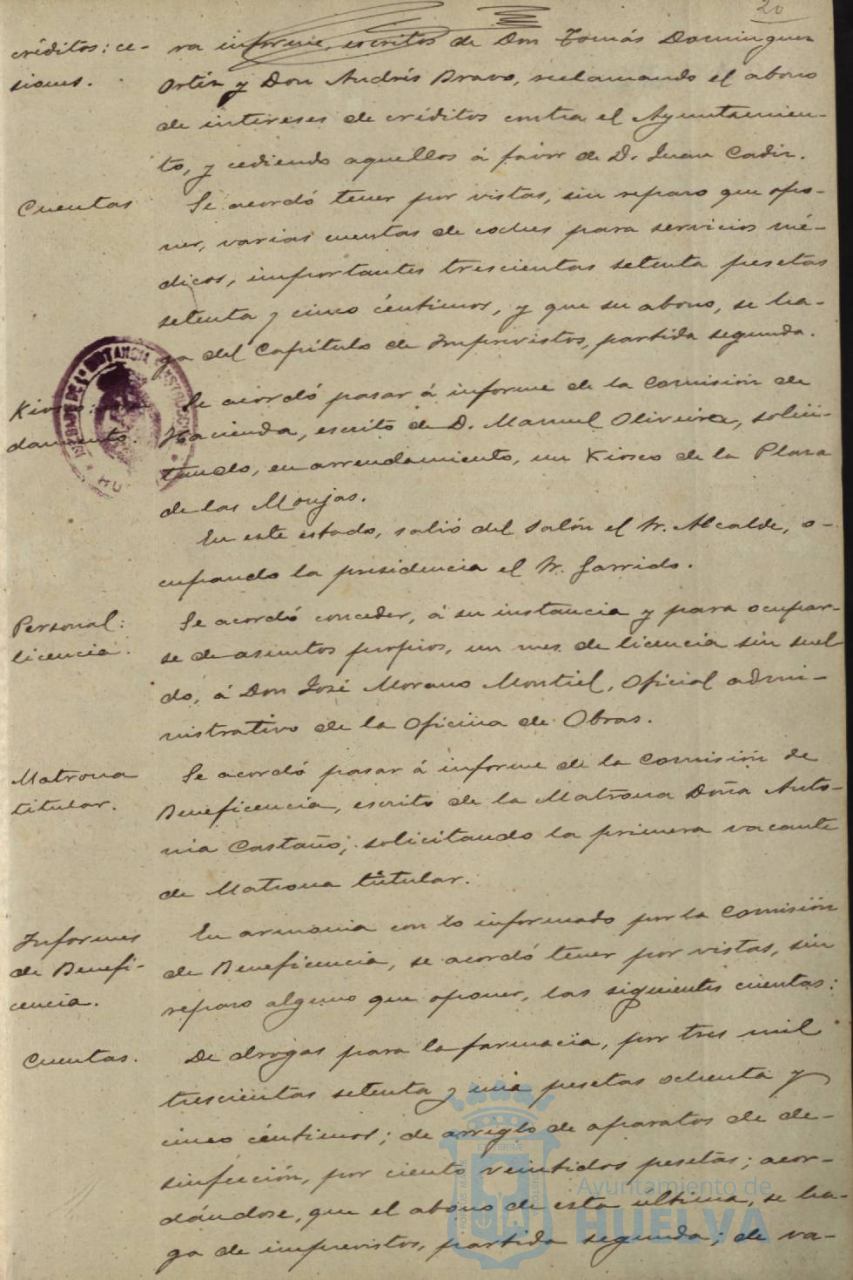 20
créditos: ce-
siones.
ra informe, escritos de Don Tomás Dominguez
Ortiz y Don Andrés Bravo, reclamando el abono
de intereses de créditos contra el Ayuntamien-
to, y cediendo aquellos á favor de D. Juan Cadiz.
Cuentas
Se acordó tener por vistas, sin reparo que opo-
ner, varias cuentas de coches para servicios mé-
dicos, importantes trescientas setenta pesetas
setenta y cinco céntimos, y que su abono, se ha-
ga del Capítulo de Imprevistos, partida segunda.
damiento.
Se acordó pasar á informe de la Comisión de
Hacienda, escrito de D. Manuel Oliveira, solici-
tando, en arrendamiento, un Kiosco de la Plaza
de las Monjas.
En este estado, salió del salón el Sr. Alcalde, o-
cupando la presidencia el Sr. Garrido.
Personal:
licencia.
Se acordó conceder, á su instancia y para ocupar-
se de asuntos propios, un mes de licencia sin suel
do, á Don José Morano Montiel, Oficial admi-
nistrativo de la Oficina de Obras.
Matrona
titular.
Se acordó pasar á informe de la Comisión de
Beneficencia, escrito de la Matrona Doña Anto-
nia Castaño; solicitando la primera vacante
de Matrona titular.
Informes
de Benefi-
cencia.
En armonia con lo informado por la Comisión
de Beneficencia, se acordó tener por vistas, sin
reparo alguno que oponer, las siguientes cuentas:
Cuentas.
De drogas para la farmacia, por tres mil
trescientas setenta y una pesetas ochenta y
cinco céntimos; de arreglo de aparatos de de-
sinfección, por ciento veintidos pesetas; acor-
dándose, que el abono de esta última, se ha-
ga de imprevistos, partida segunda; de va-
Ayuntamiento de
HUELVA